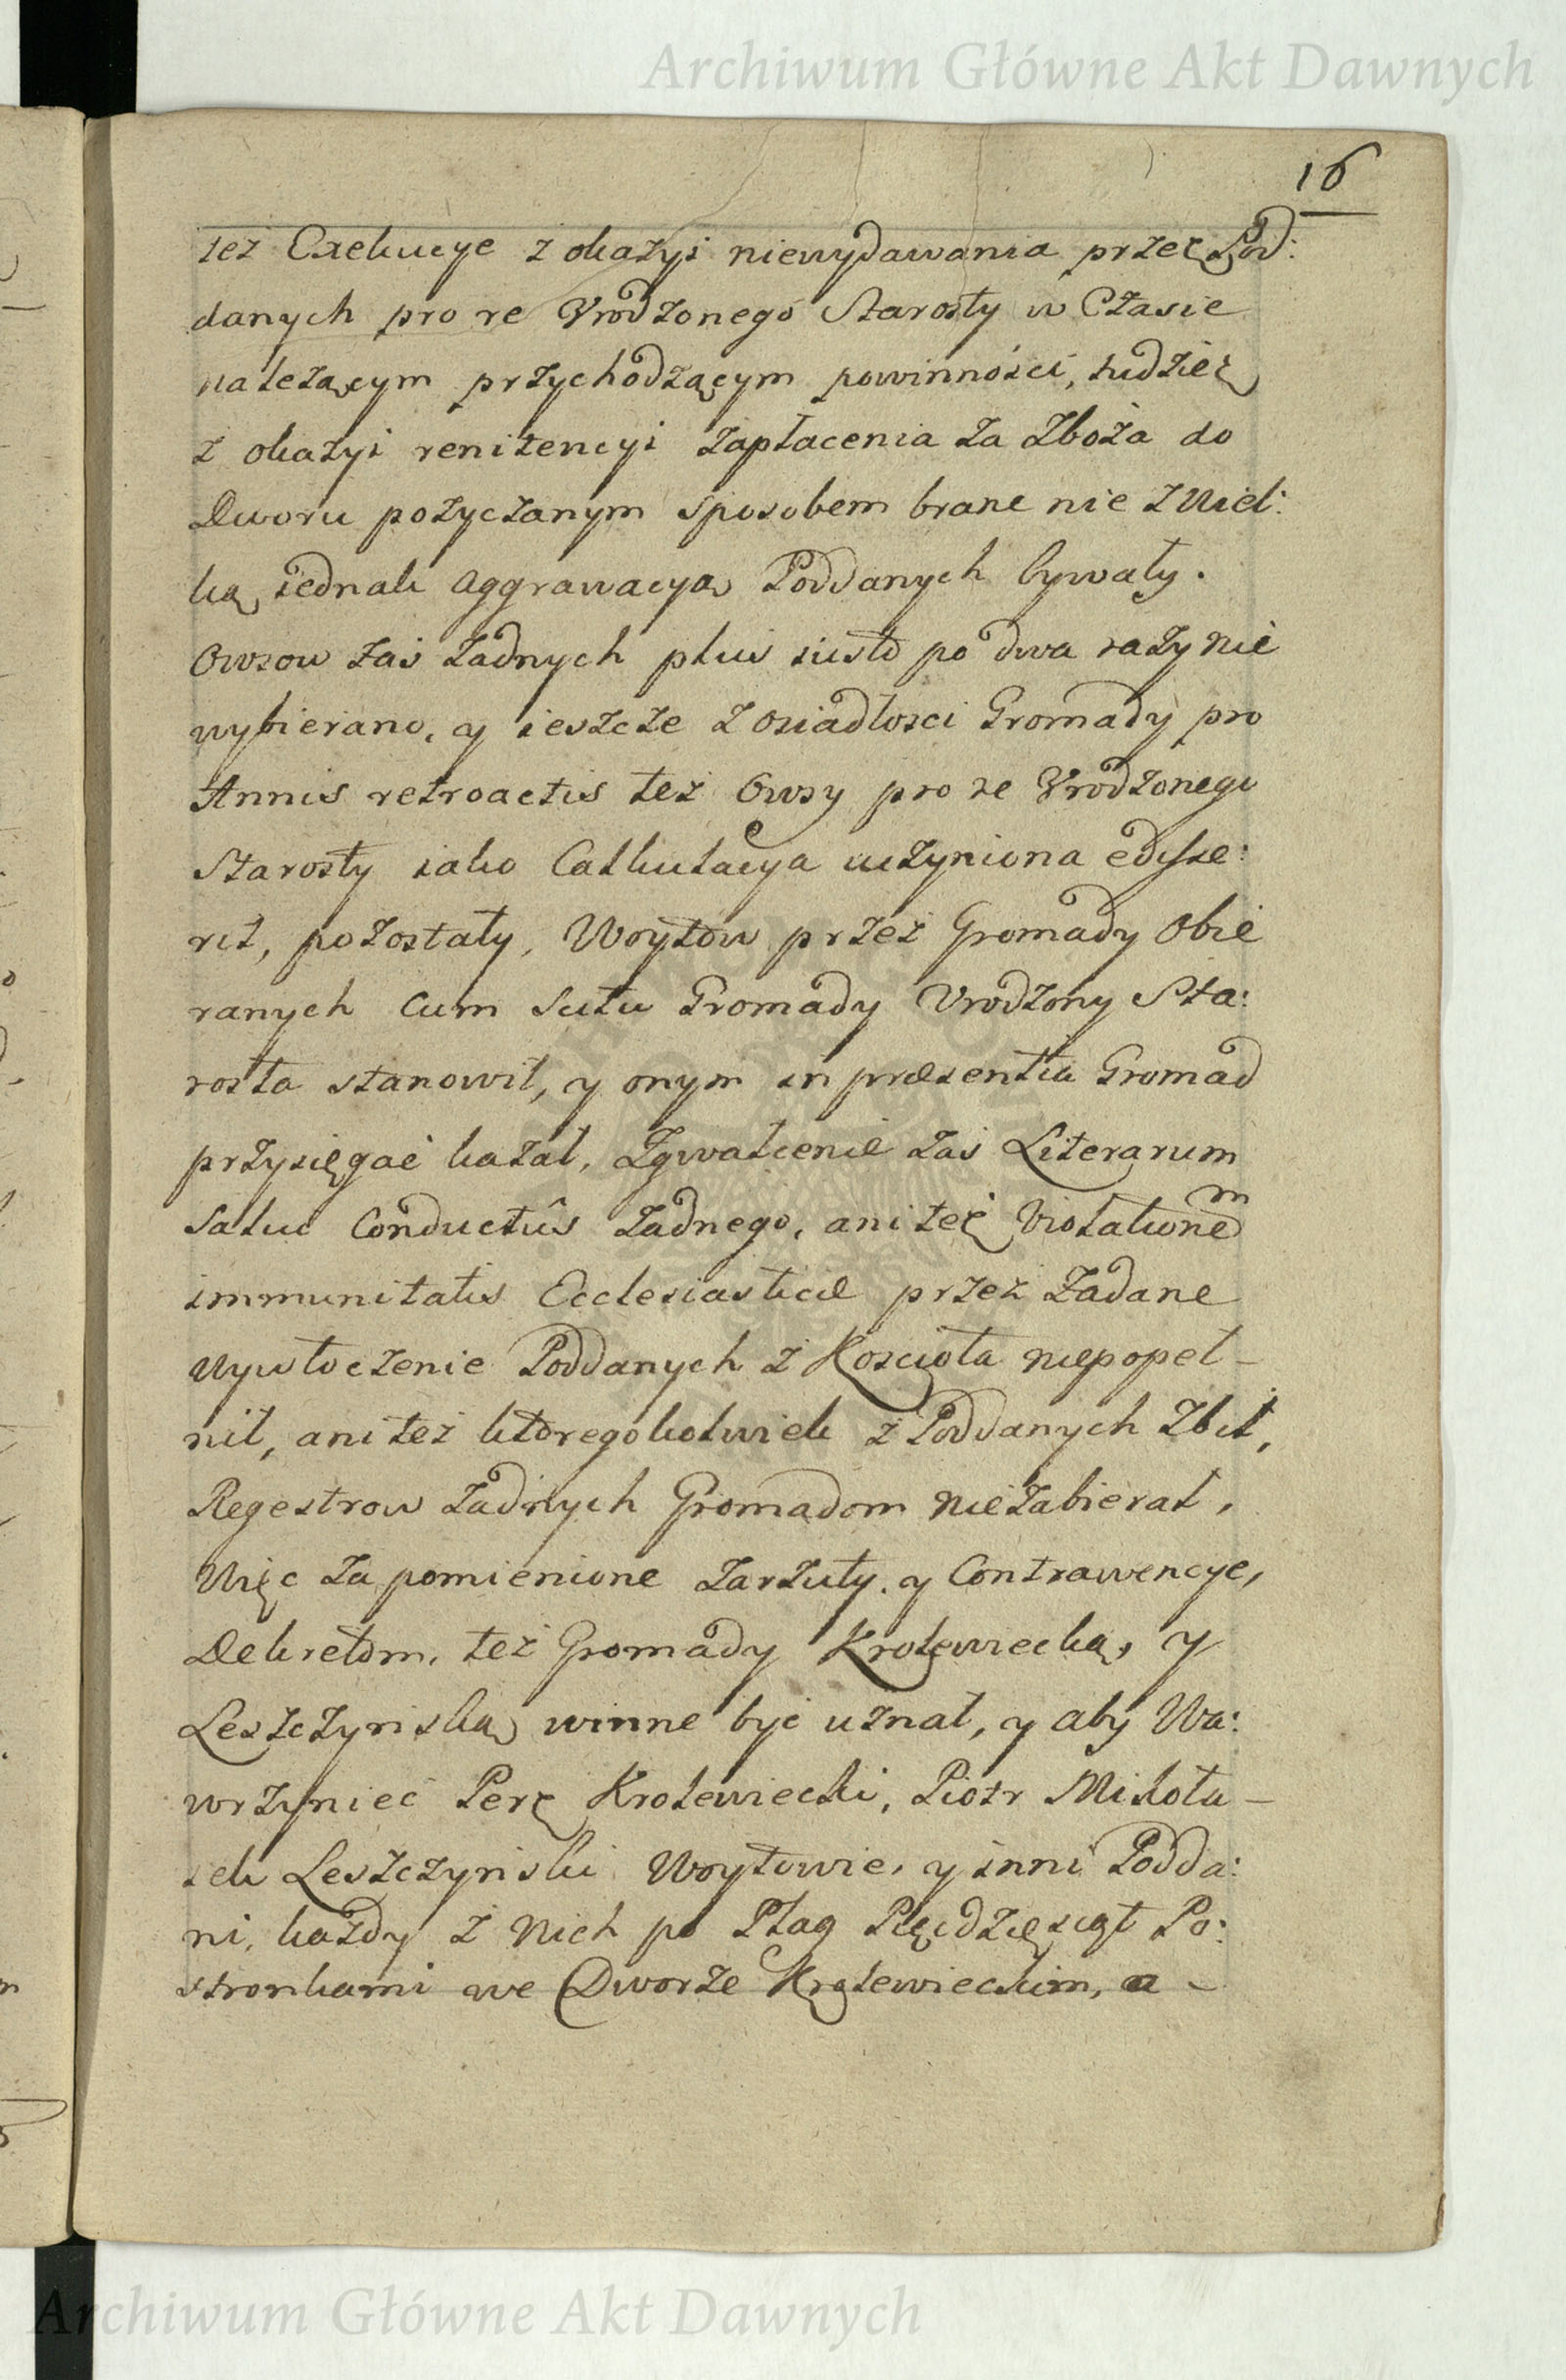 Archiwum Główne Akt Dawnych
16
też Exekucye z okazyi niewydawania przez Pod:
danych pro re Vrodzonego Starosty w Czasie
należącym przychodzącym powinności, tudzież
z okazyi renitencyi zapłacenia za Zboża do
Dworu pożyczanym sposobem brane nie z Wiel:
ką iednak aggrawacyą Poddanych bywały.
Owsow zaś żadnych plus iusto po dwa razy nie
wybierano, y ieszcze z osiadłości Gromady pro
Annis retroactis też Owsy pro re Vrodzonego
Starosty iako Calkulacya uczyniona edisse:
rit, pozostały, Woytow przez Gromady Obie
ranych cum scitu Gromady Vrodzony Sta:
rosta stanowił, y onym in præsentia Gromad
przysięgać kazał, Zgwałcenie zaś Literarum
salui Conductûs żadnego, ani też Violationem
immunitatis Ecclesiasticæ przez żadane
wywłoczenie Poddanych z Kościoła niepopeł-
nił, ani też któregokolwiek z Poddanych Zbił,
Regestrow żadnych Gromadom nie zabierał,
Więc za pomienione zarzuty. y Contrawencye,
Dekretom, też Gromady Krolewiecką, y
Leszczyńską winne być uznał, y aby Wa:
wrzyniec Perz Krolewiecki, Piotr Mikoła-
iek Leszczyński Woytowie, y inni Podda:
ni, każdy z Nich po Plag Pięćdziesiąt Po:
stronkami we Dworze Krolewieckim, a -
Archiwum Główne Akt Dawnych